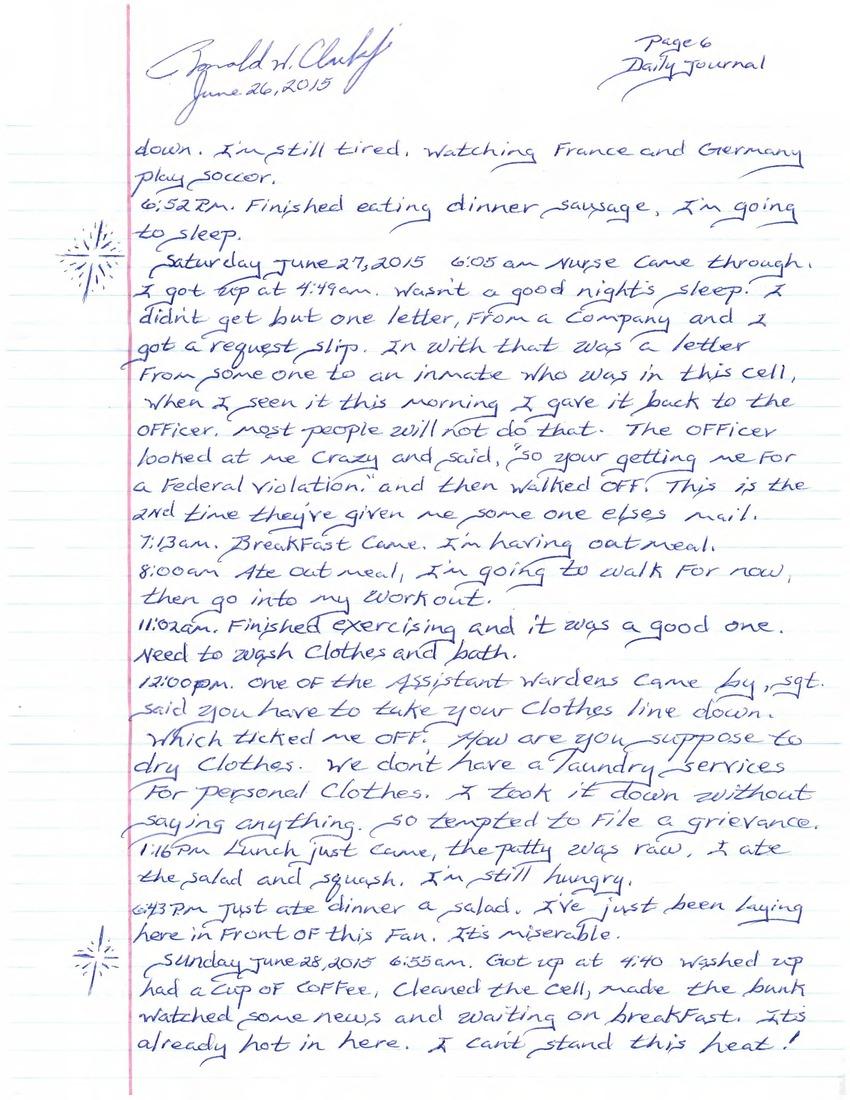 Ronald W. Clark Jr
June 26, 2015
Page 6
Daily Journal
down. I'm still tired. Watching France and Germany
play soccor.
6:52 P.m. Finished eating dinner sausage, I'm going
to sleep.
Saturday June 27, 2015 6:05 am Nurse came through.
I got up at 4:49am. Wasn't a good night's sleep. I
didn't get but one letter, From a Company and I
got a request slip. In with that was a letter
From some one to an inmate who was in this cell,
When I seen it this morning I gave it back to the
OFFicer. Most people will not do that. The OFFicer
looked at me Crazy and said, "so your getting me For
a Federal violation." and then walked OFF. This is the
2nd time they've given me some one elses mail.
7:13am. BreakFast Came. I'm having oatmeal.
8:00am Ate oatmeal, I'm going to walk For now,
then go into my workout.
11:02am. Finished exercising and it was a good one.
Need to wash Clothes and bath.
12:00pm. One OF the Assistant Wardens Came by, sgt.
said you have to take your Clothes line down.
Which ticked me OFF. How are you suppose to
dry Clothes. We don't have a laundry services
For personal Clothes. I took it down without
saying anything. So tempted to File a grievance.
1:16 Pm Lunch just came, the patty was raw. I ate
the salad and squash. I'm still hungry.
6:43 Pm Just ate dinner a salad. I've just been laying
here in Front OF this Fan. It's miserable.
Sunday June 28, 2015 6:55am. Got up at 4:40 Washed up
had a Cup OF COFFee, Cleaned the Cell, made the bunk
Watched some news and waiting on breakFast. It's
already hot in here. I can't stand this heat!